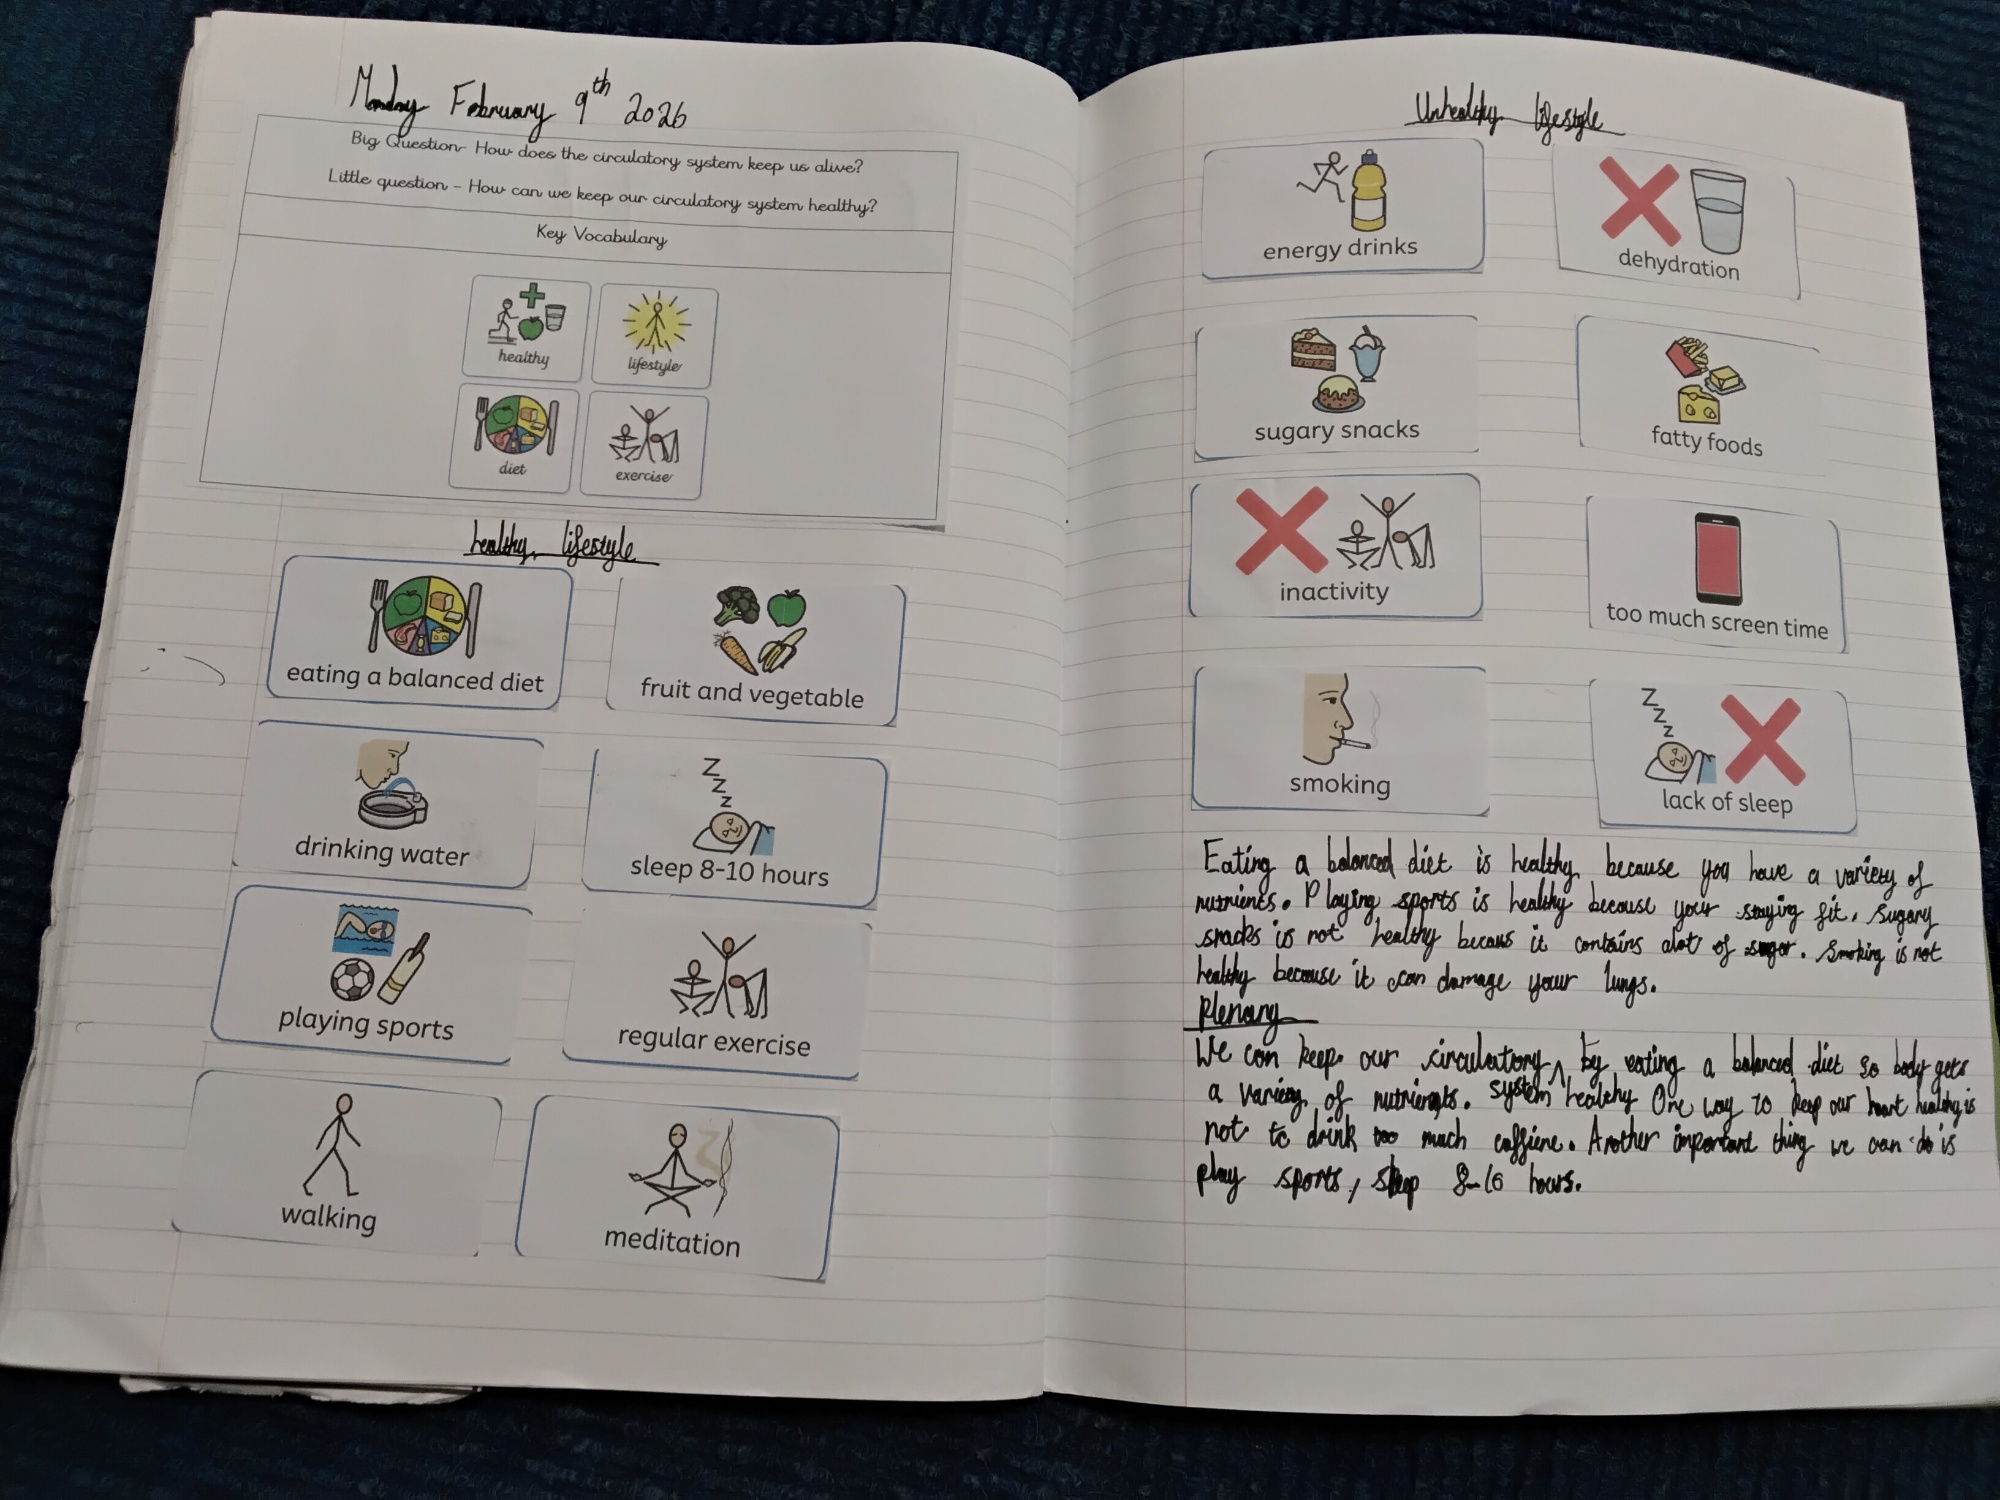 Monday February 9th 2026
Big Question- How does the circulatory system keep us alive?
Little question - How can we keep our circulatory system healthy?
Key Vocabulary
healthy
lifestyle
diet
exercise
healthy lifestyle
eating a balanced diet
fruit and vegetable
drinking water
sleep 8-10 hours
playing sports
regular exercise
walking
meditation
Unhealthy lifestyle
energy drinks
dehydration
sugary snacks
fatty foods
inactivity
too much screen time
smoking
lack of sleep
Eating a balanced diet is healthy because you have a variety of
nutrients. Playing sports is healthy because your staying fit. Sugary
snacks is not healthy becaus it contains alot of sugar. Smoking is not
healthy because it can damage your lungs.
Plenary
We can keep our circulatory ^ by eating a balanced diet so body gets
a variety of nutrients. system healthy One way to keep our heart healthy is
not to drink too much caffiene. Another important thing we can do is
play sports, sleep 8-10 hours.